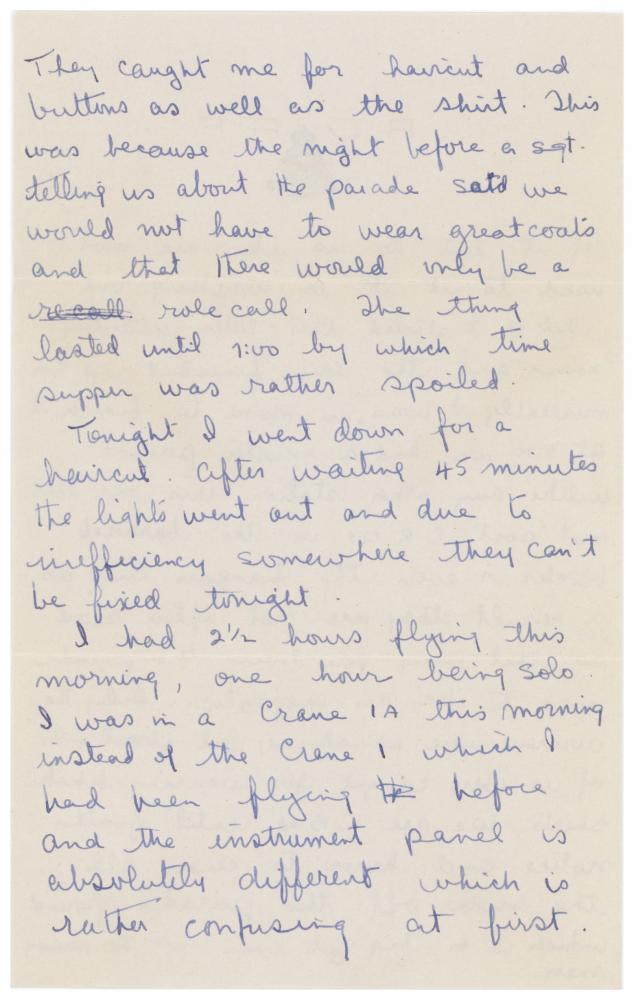 They caught me for haircut and
buttons as well as the shirt. This
was because the night before a sgt.
telling us about the parade said we
would not have to wear greatcoats
and that there would only be a
recall role call. The thing
lasted until 7:00 by which time
supper was rather spoiled.
Tonight I went down for a
haircut. After waiting 45 minutes
the lights went out and due to
inefficiency somewhere they can't
be fixed tonight.
I had 2 1/2 hours flying this
morning, one hour being solo.
I was in a Crane 1A this morning
instead of the Crane 1 which I
had been flying before
and the instrument panel is
absolutely different which is
rather confusing at first.